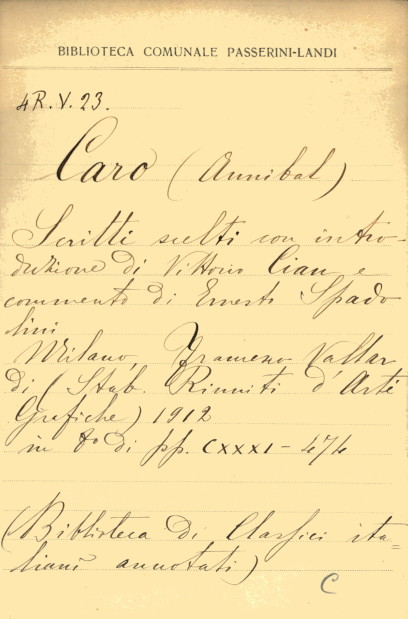 BIBLIOTECA COMUNALE PASSERINI-LANDI
4R.V.23.
Caro (Annibal)
Scritti scelti con intro-
duzione di Vittorio Cian e
commento di Ernesto Spado
lini
Milano, Francesco Vallar
di (Stab. Riuniti d'Arti
Grafiche) 1912
in 8º di pp. CXXXI-474
(Biblioteca di Classici ita=
liani annotati)
C